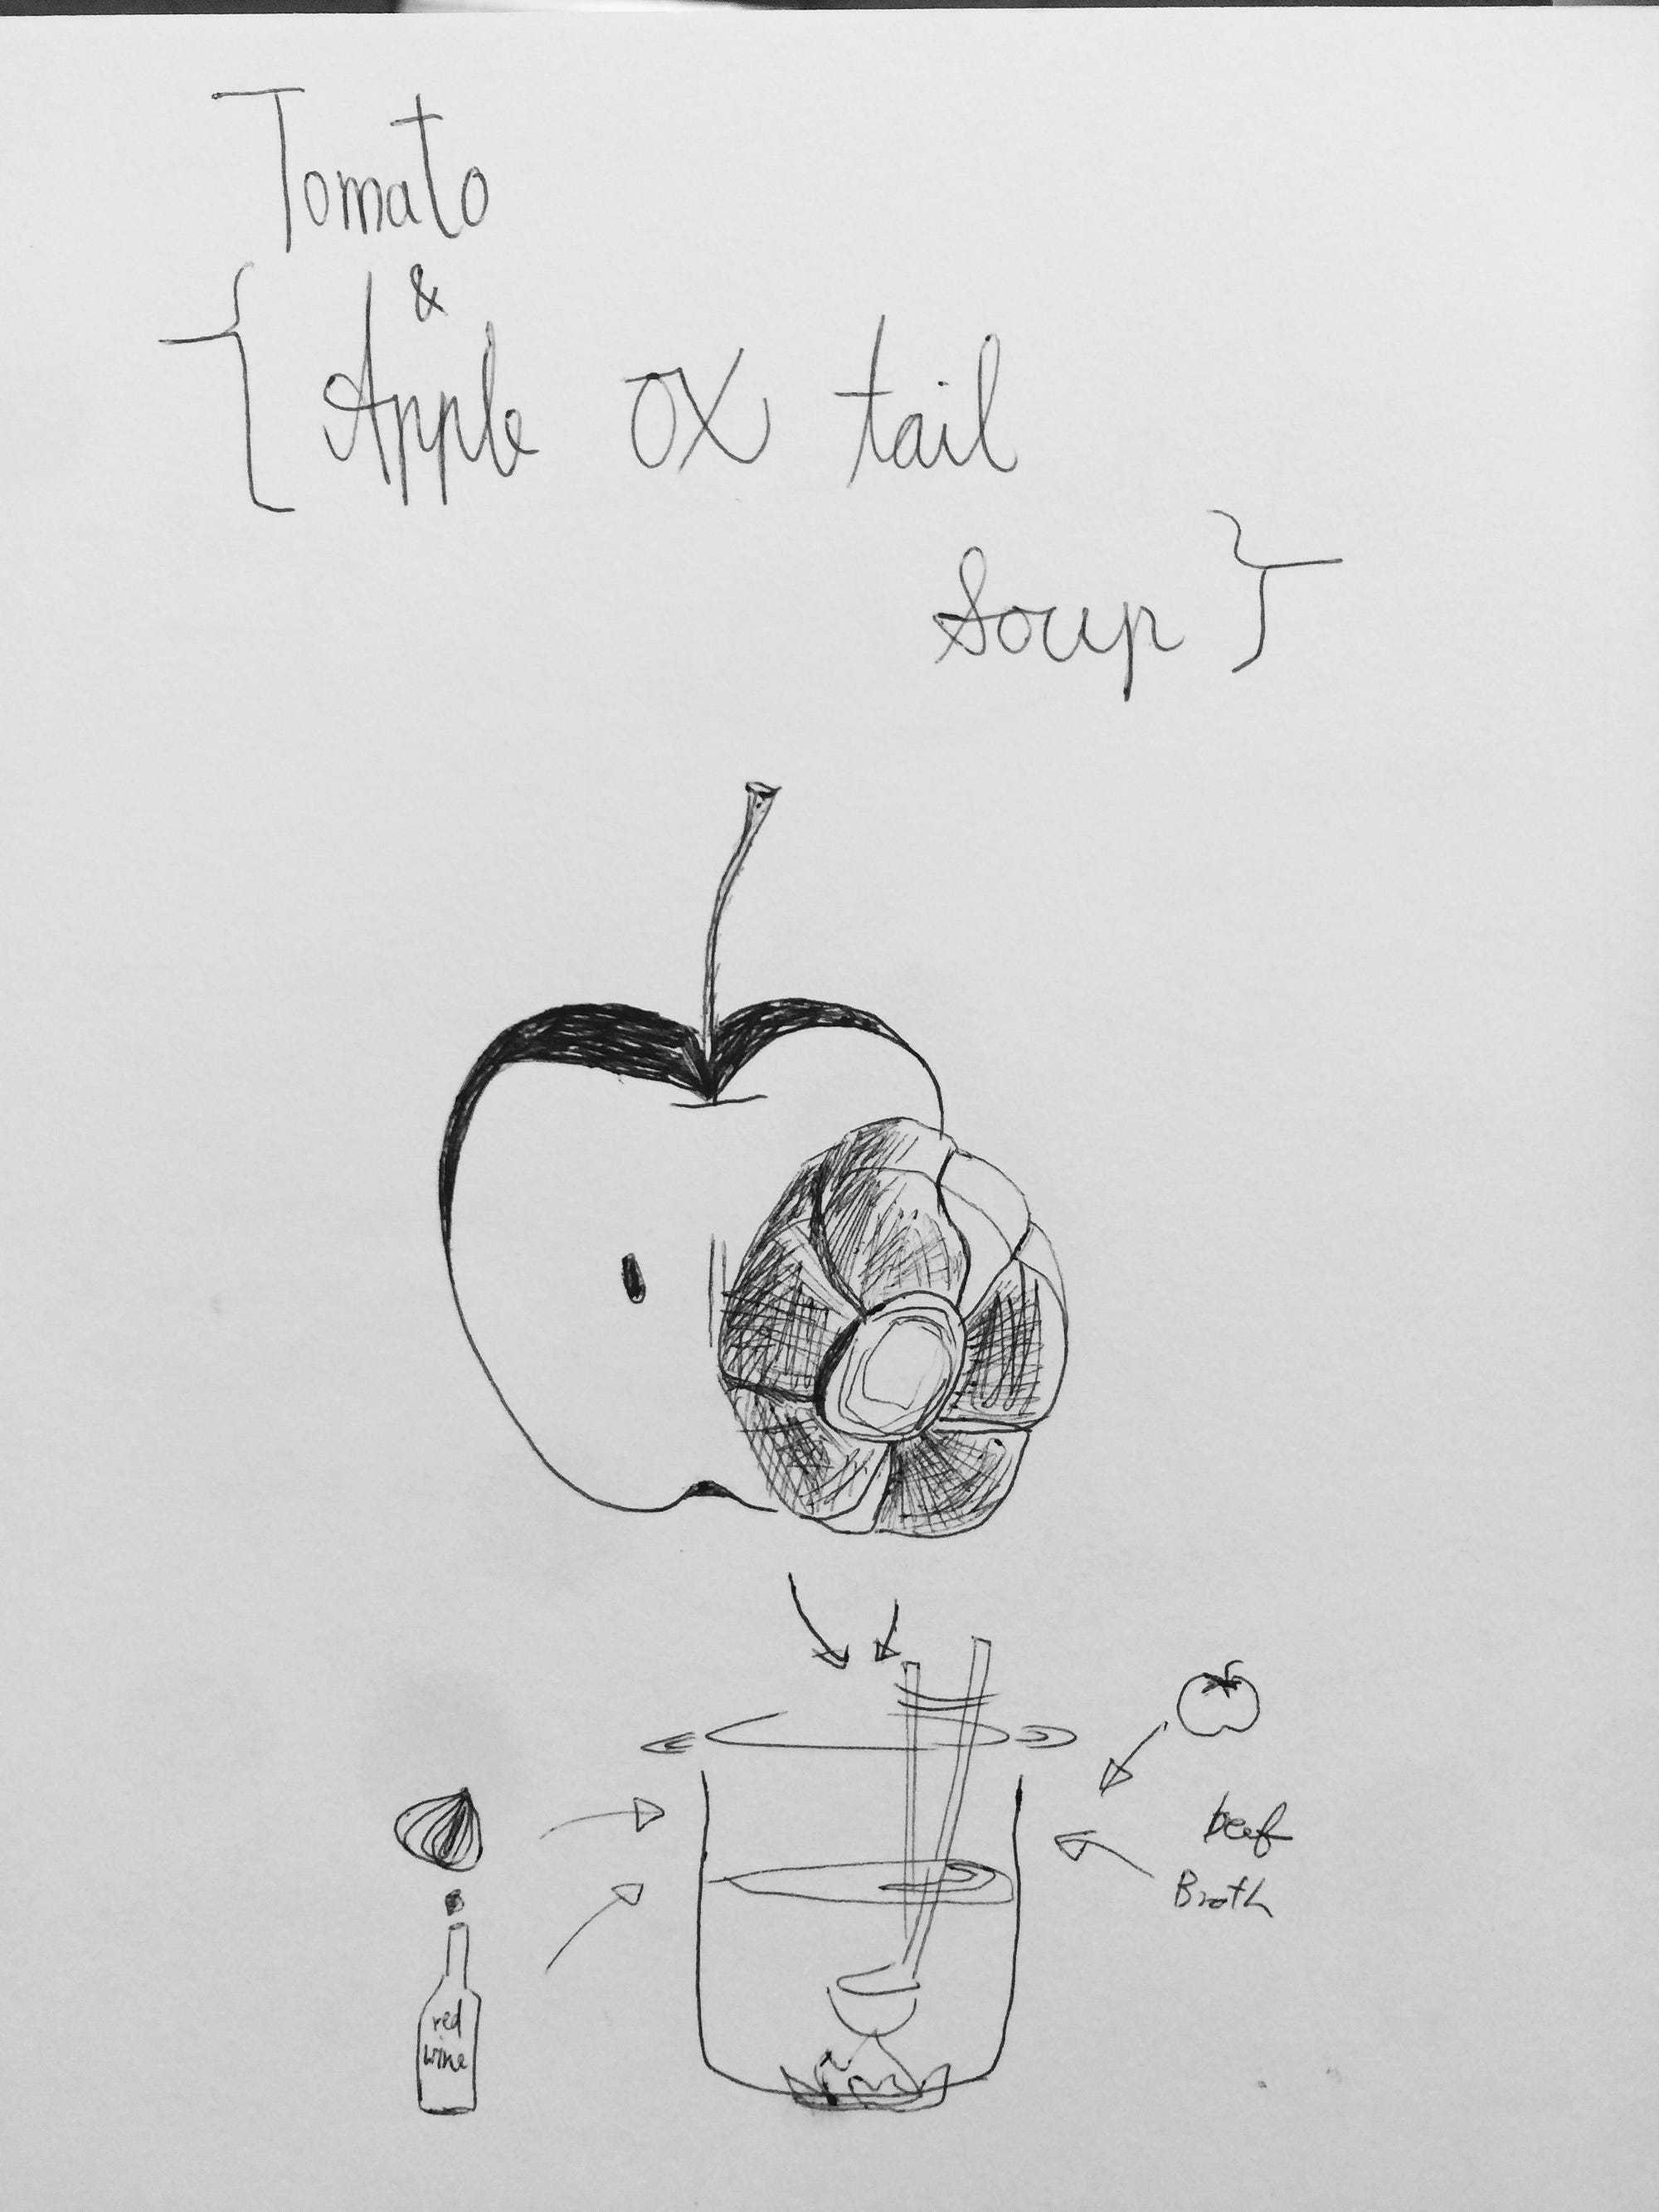 Tomato
&
{ Apple ox tail
Soup }
beef
Broth
red
wine